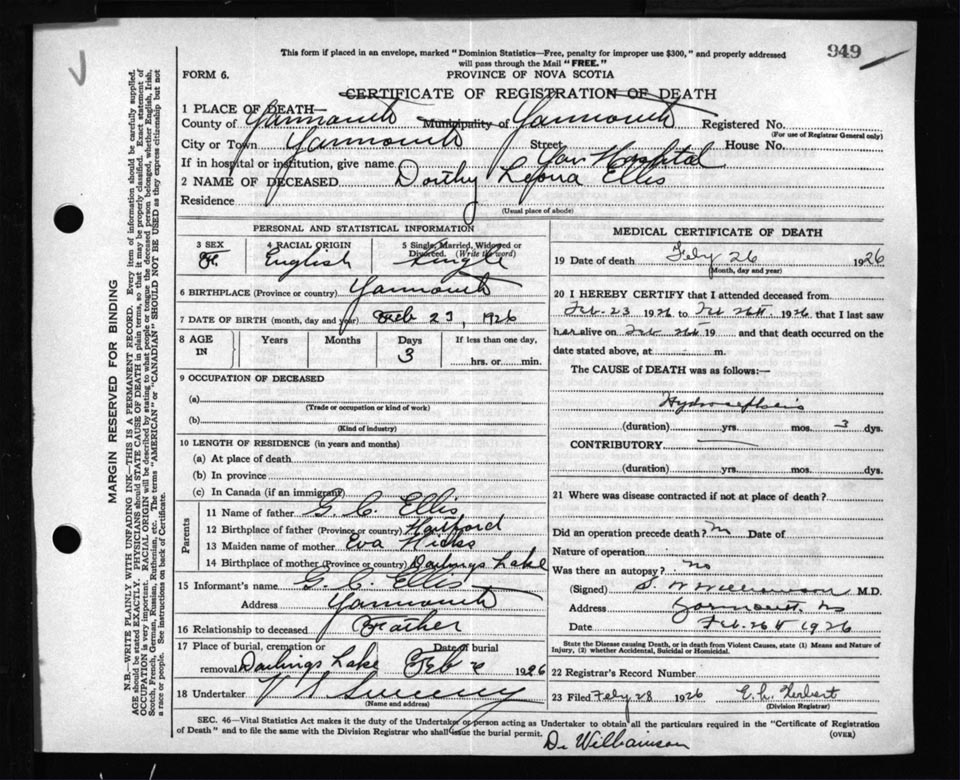 949
This form if placed in an envelope, marked "Dominion Statistics—Free, penalty for improper use $300," and properly addressed
will pass through the Mail "FREE."
FORM 6.
PROVINCE OF NOVA SCOTIA
CERTIFICATE OF REGISTRATION OF DEATH
MARGIN RESERVED FOR BINDING
N.B.—WRITE PLAINLY WITH UNFADING INK—THIS IS A PERMANENT RECORD. Every item of information should be carefully supplied.
AGE should be stated EXACTLY. PHYSICIANS should STATE CAUSE OF DEATH in plain terms, so that it may be properly classified. Exact statement of
OCCUPATION is very important. RACIAL ORIGIN will be described by stating to what people or tongue the deceased person belonged, whether English, Irish,
Scotch, French, German, Russian, Ruthenian, etc. The terms "AMERICAN" or "CANADIAN" SHOULD NOT BE USED as they express citizenship but not
a race or people. See instructions on back of Certificate.
1 PLACE OF DEATH—
County of Yarmouth Municipality of Yarmouth Registered No.
(For use of Registrar General only)
City or Town Yarmouth Street House No.
If in hospital or institution, give name Yar Hospital
2 NAME OF DECEASED Dorthy Leona Ellis
Residence
(Usual place of abode)
PERSONAL AND STATISTICAL INFORMATION
3 SEX F. 4 RACIAL ORIGIN English 5 Single, Married, Widowed or Divorced. (Write the word) Single
6 BIRTHPLACE (Province or country) Yarmouth
7 DATE OF BIRTH (month, day and year) Feb 23, 1926
8 AGE IN Years Months Days 3 If less than one day, hrs. or min.
9 OCCUPATION OF DECEASED
(a)
(Trade or occupation or kind of work)
(b)
(Kind of industry)
10 LENGTH OF RESIDENCE (in years and months)
(a) At place of death
(b) In province
(c) In Canada (if an immigrant)
Parents
11 Name of father G. C. Ellis
12 Birthplace of father (Province or country) Hartford
13 Maiden name of mother Eva Hicks
14 Birthplace of mother (Province or country) Darlings Lake
15 Informant's name G. C. Ellis
Address Yarmouth
16 Relationship to deceased Father
17 Place of burial, cremation or removal Darlings Lake Date of burial Feb 1926
18 Undertaker V S Sweeny
(Name and address)
MEDICAL CERTIFICATE OF DEATH
19 Date of death Feby 26 1926
(Month, day and year)
20 I HEREBY CERTIFY that I attended deceased from
Feb. 23 1926 to Feb 26th 1926 that I last saw
her alive on Feb 26th 19 and that death occurred on
date stated above, at m.
The CAUSE of DEATH was as follows:—
(duration) yrs. mos. 3 dys.
CONTRIBUTORY
(duration) yrs. mos. dys.
21 Where was disease contracted if not at place of death?
Did an operation precede death? Date of
Nature of operation
Was there an autopsy? no
(Signed) S. W Williamson M.D.
Address Yarmouth, NS
Date Feb. 26th 1926
State the Disease causing Death, or in death from Violent Causes, state (1) Means and Nature of
Injury, (2) whether Accidental, Suicidal or Homicidal.
22 Registrar's Record Number
23 Filed Feby 28 1926 E. L. Herbert
(Division Registrar)
SEC. 46—Vital Statistics Act makes it the duty of the Undertaker or person acting as Undertaker to obtain all the particulars required in the "Certificate of Registration
of Death" and to file the same with the Division Registrar who shall issue the burial permit.
(OVER)
Dr Williamson